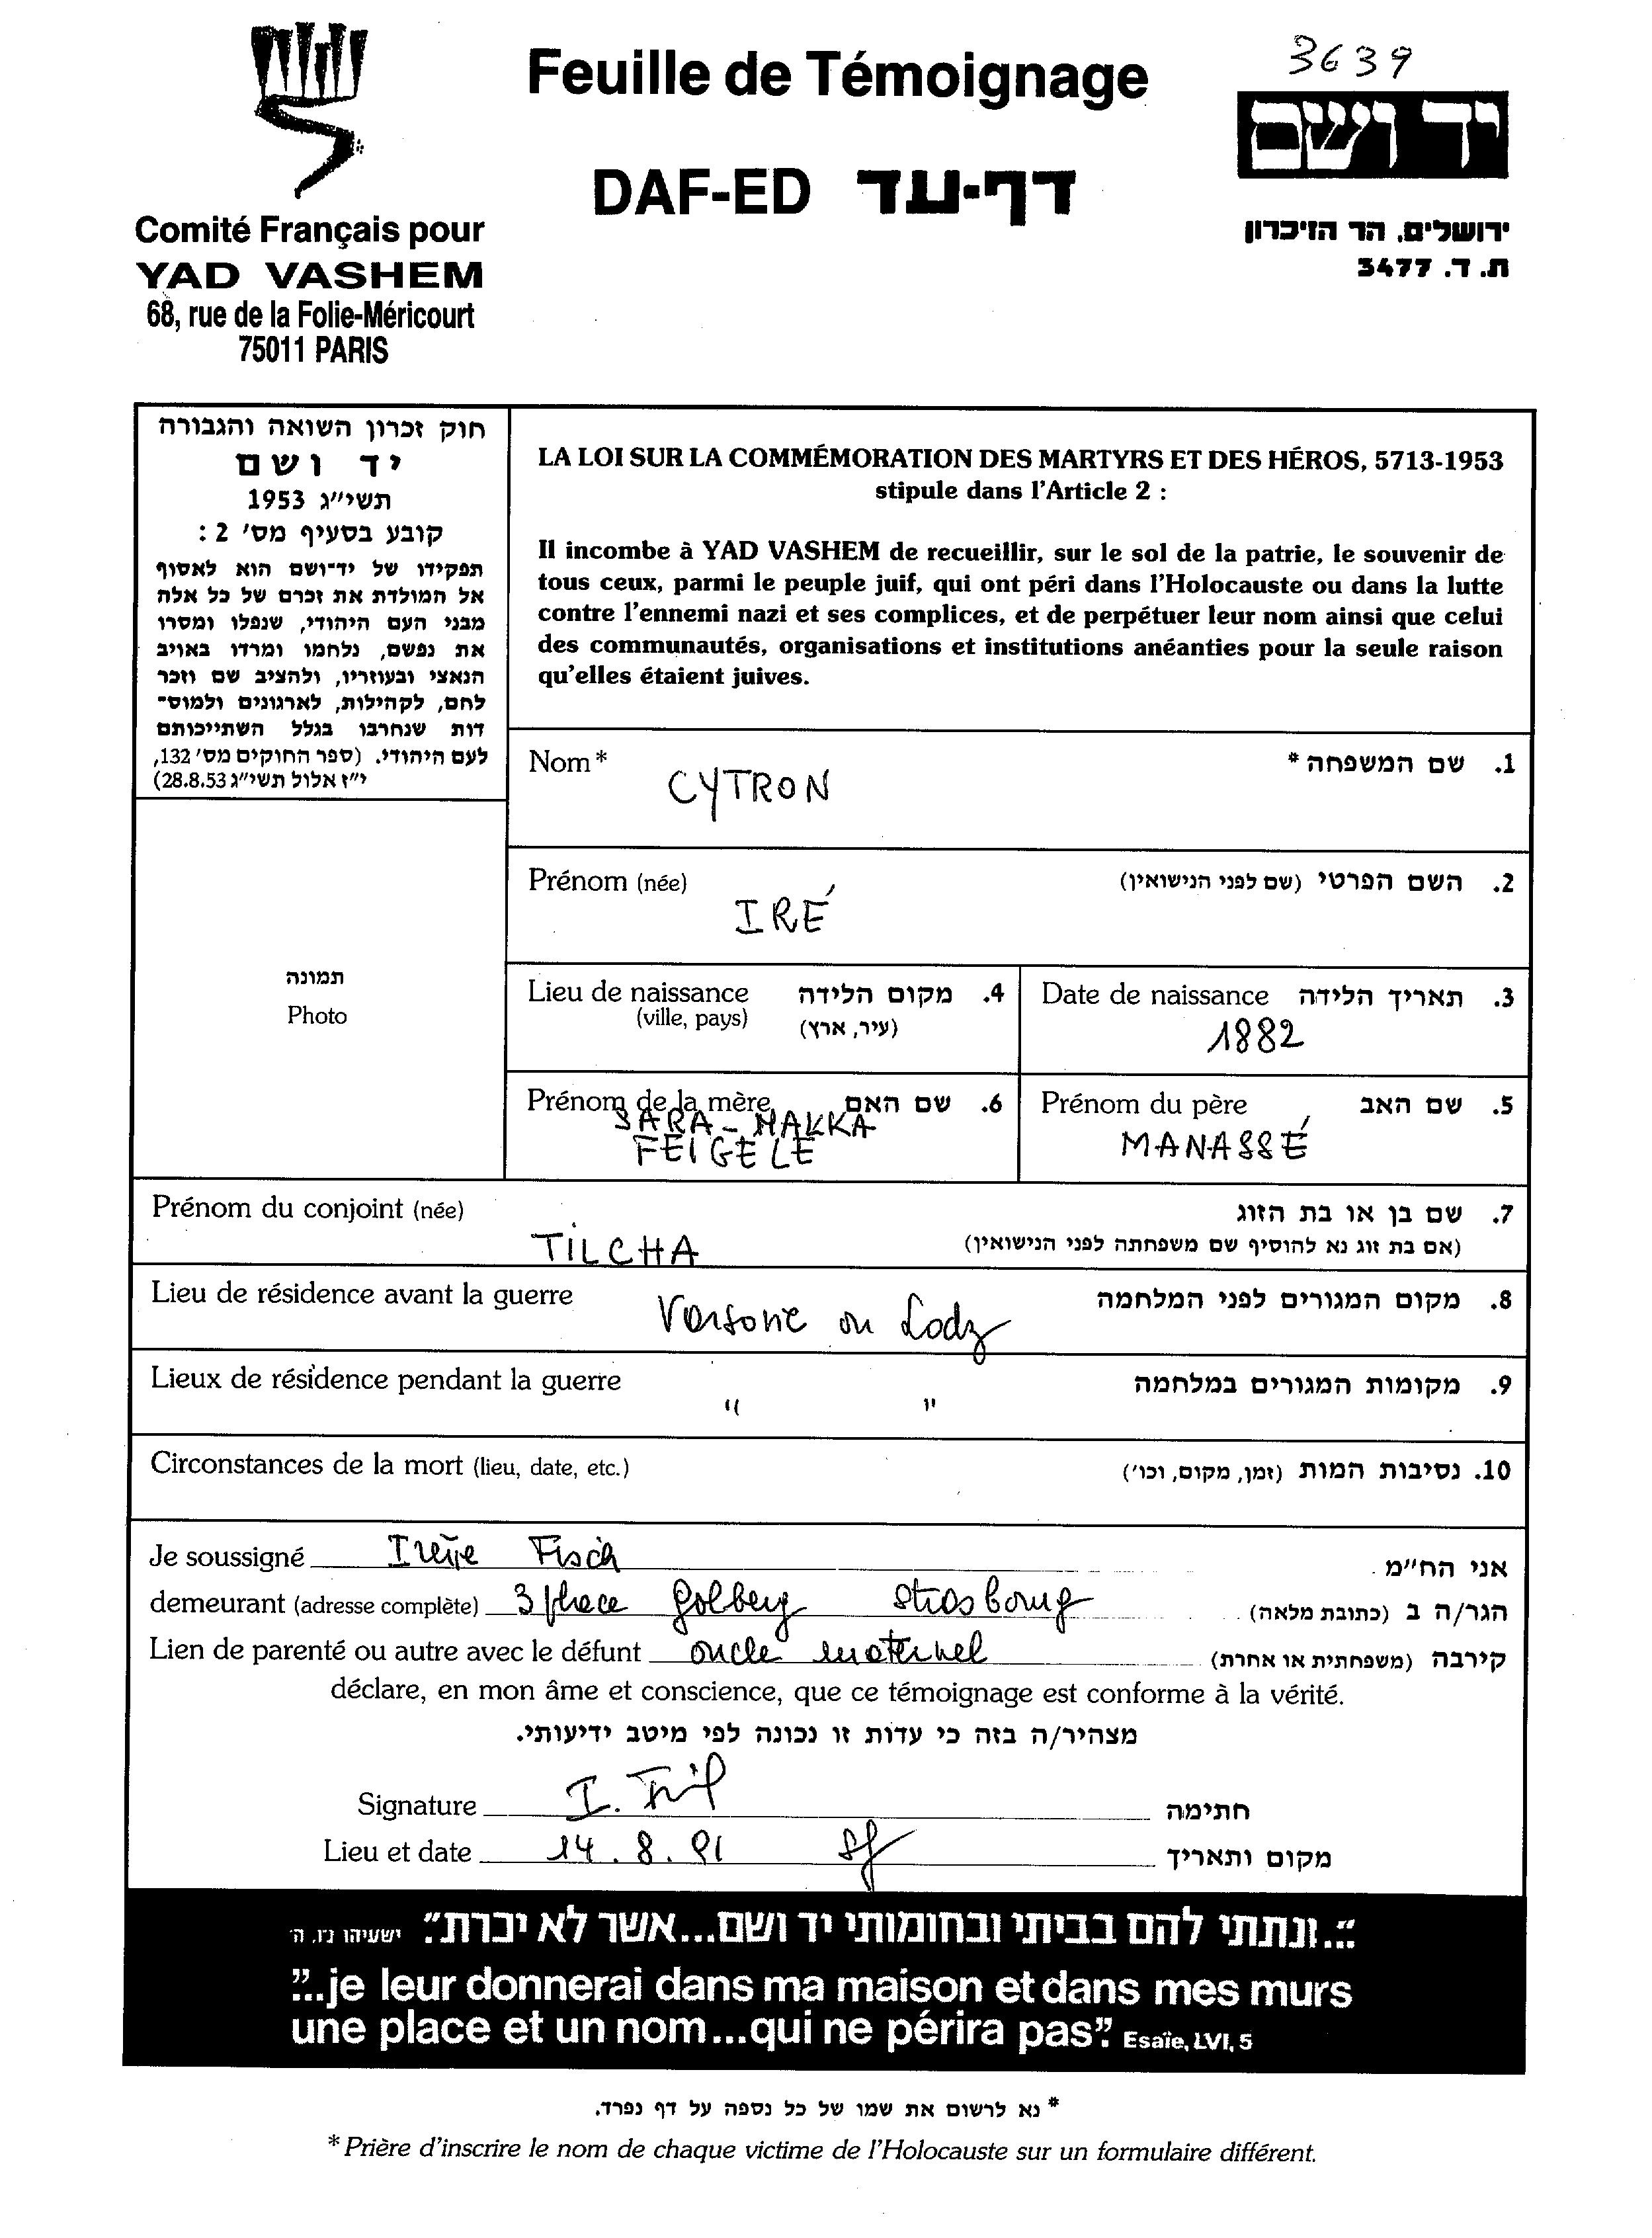 Feuille de Témoignage
3639
DAF-ED דף-עד
יד ושם
Comité Français pour
YAD VASHEM
68, rue de la Folie-Méricourt
75011 PARIS
ירושלים, הר הזיכרון
ת. ד. 3477
חוק זכרון השואה והגבורה
יד ושם
תשי״ג 1953
קובע בסעיף מס׳ 2 :
תפקידו של יד־ושם הוא לאסוף
אל המולדת את זכרם של כל אלה
מבני העם היהודי, שנפלו ומסרו
את נפשם, נלחמו ומרדו באויב
הנאצי ובעוזריו, ולהציב שם וזכר
להם, לקהילות, לארגונים ולמוס־
דות שנחרבו בגלל השתייכותם
לעם היהודי. (ספר החוקים מס׳ 132,
י״ז אלול תשי״ג 28.8.53)
LA LOI SUR LA COMMÉMORATION DES MARTYRS ET DES HÉROS, 5713-1953
stipule dans l'Article 2 :
Il incombe à YAD VASHEM de recueillir, sur le sol de la patrie, le souvenir de
tous ceux, parmi le peuple juif, qui ont péri dans l'Holocauste ou dans la lutte
contre l'ennemi nazi et ses complices, et de perpétuer leur nom ainsi que celui
des communautés, organisations et institutions anéanties pour la seule raison
qu'elles étaient juives.
תמונה
Photo
Nom * 1. שם המשפחה *
CYTRON
Prénom (née) 2. השם הפרטי (שם לפני הנישואין)
IRÉ
Lieu de naissance 4. מקום הלידה
(ville, pays) (עיר, ארץ)
Date de naissance 3. תאריך הלידה
1882
Prénom de la mère 6. שם האם
SARA - MAKKA
FEIGELE
Prénom du père 5. שם האב
MANASSÉ
Prénom du conjoint (née) 7. שם בן או בת הזוג
TILCHA (אם בת זוג נא להוסיף שם משפחתה לפני הנישואין)
Lieu de résidence avant la guerre 8. מקום המגורים לפני המלחמה
Varsovie ou Lodz
Lieux de résidence pendant la guerre 9. מקומות המגורים במלחמה
" "
Circonstances de la mort (lieu, date, etc.) 10. נסיבות המות (זמן, מקום, וכו׳)
Je soussigné Irène Fisch אני הח״מ
demeurant (adresse complète) 3 place Golbery Strasbourg הגר/ה ב (כתובת מלאה)
Lien de parenté ou autre avec le défunt oncle maternel קירבה (משפחתית או אחרת)
déclare, en mon âme et conscience, que ce témoignage est conforme à la vérité.
מצהיר/ה בזה כי עדות זו נכונה לפי מיטב ידיעותי.
Signature חתימה
Lieu et date 14.8.91 מקום ותאריך
"...ונתתי להם בביתי ובחומותי יד ושם...אשר לא יכרת". ישעיהו נ״ו, ה׳
"...je leur donnerai dans ma maison et dans mes murs
une place et un nom...qui ne périra pas". Esaïe, LVI, 5
* נא לרשום את שמו של כל נספה על דף נפרד.
* Prière d'inscrire le nom de chaque victime de l'Holocauste sur un formulaire différent.